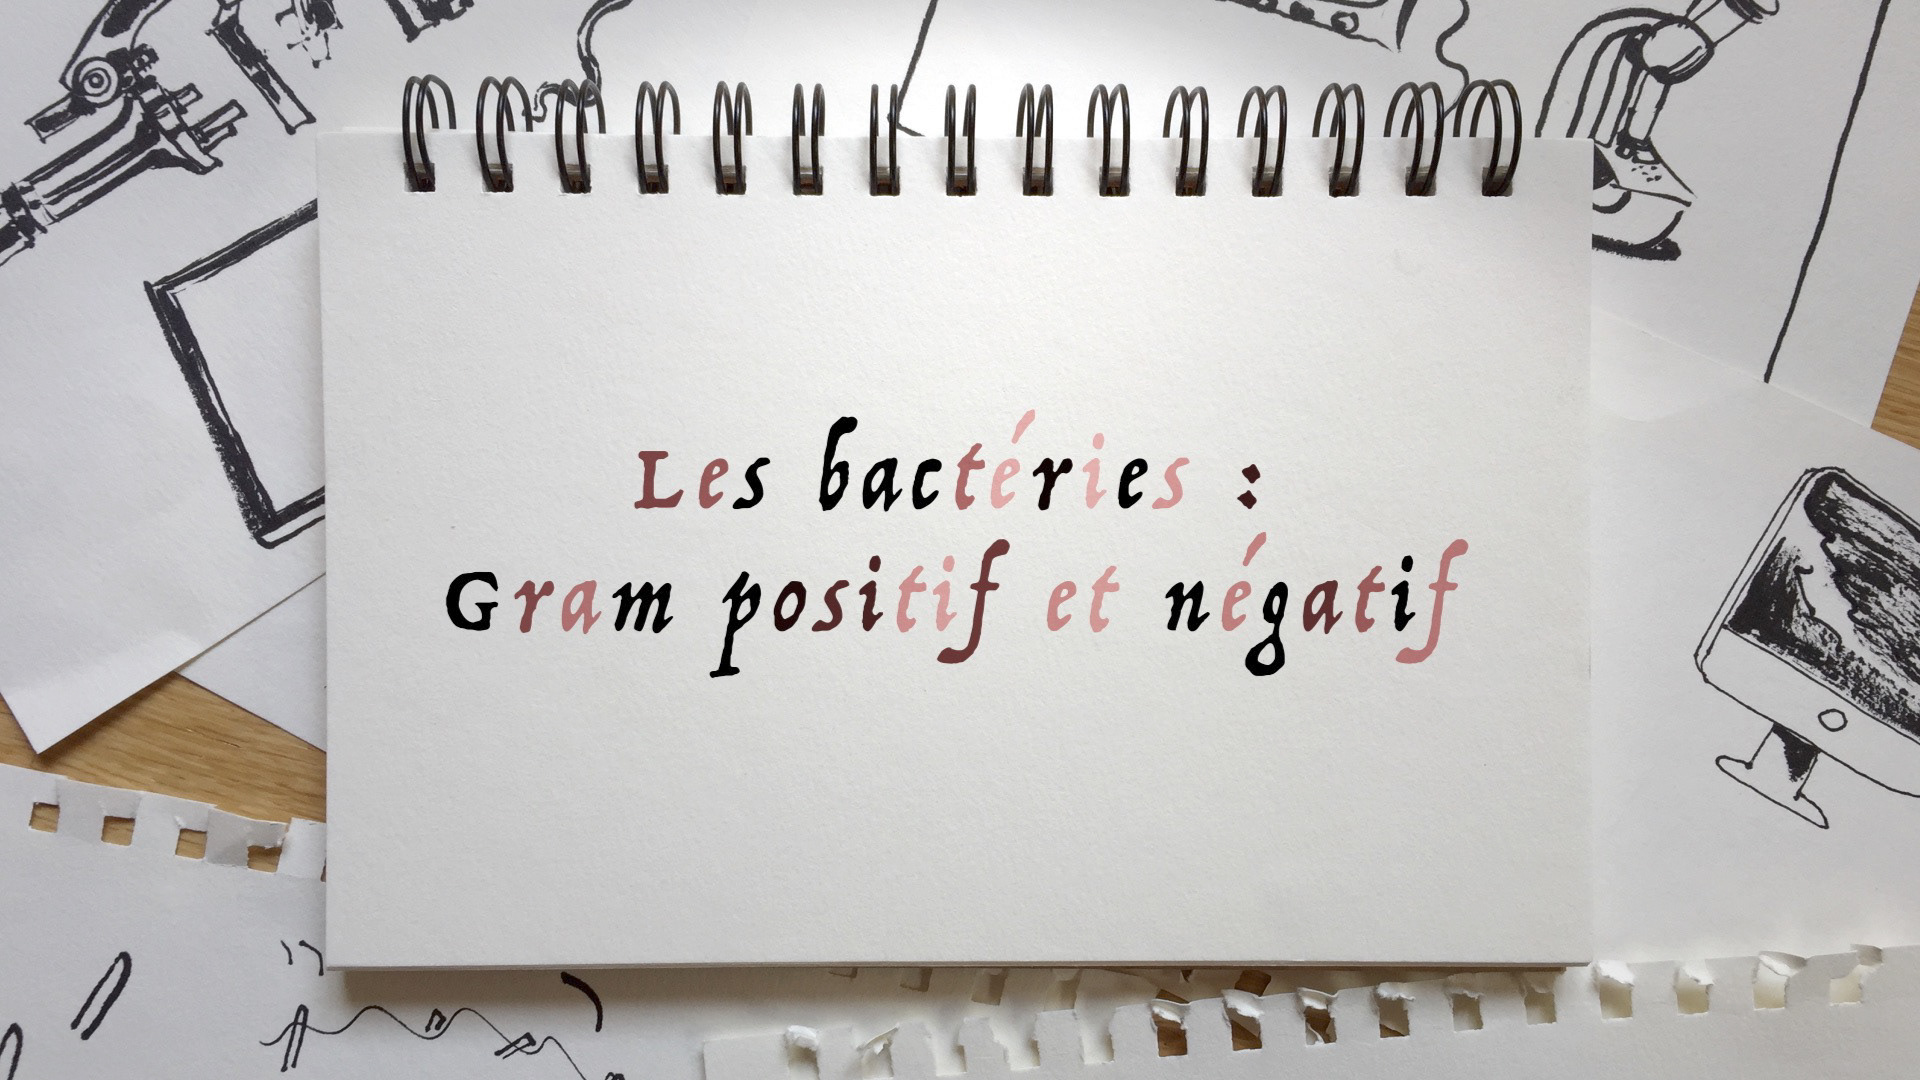 Les bactéries :
Gram positif et négatif